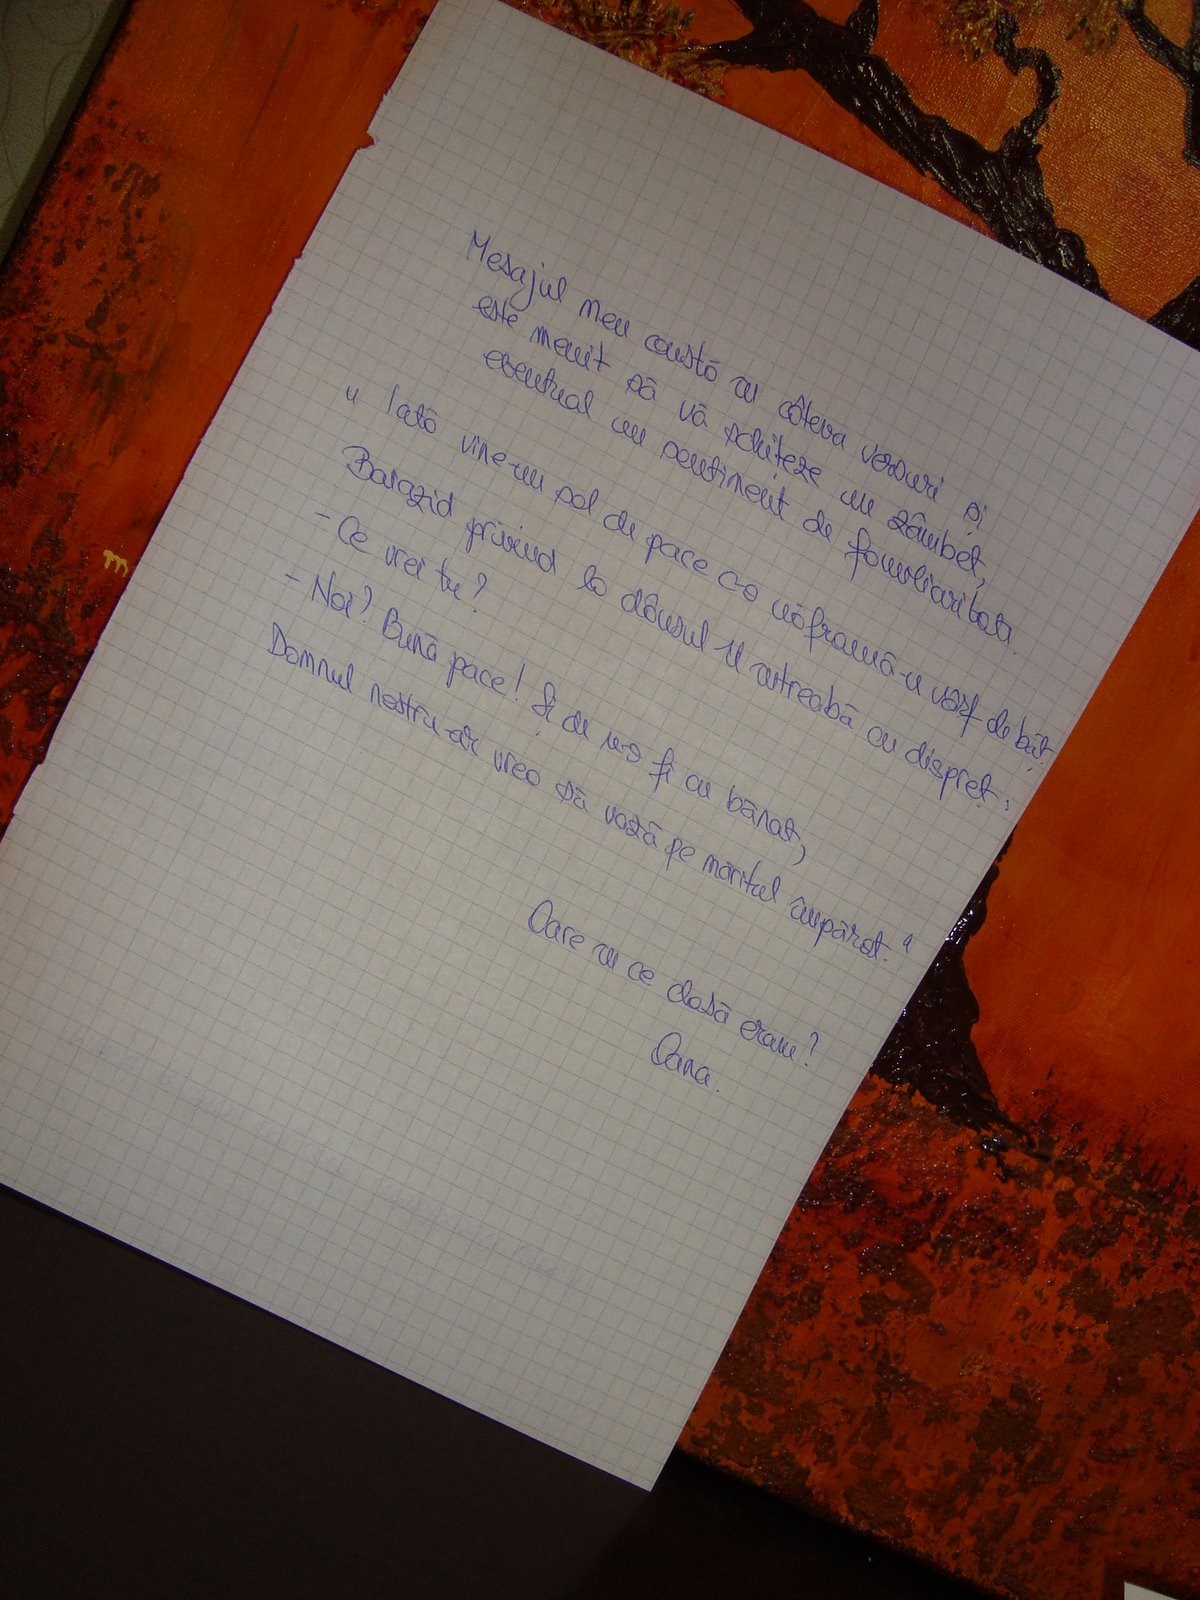 Mesajul meu constă în câteva versuri și
este menit să vă schițeze un zâmbet,
eventual un sentiment de familiaritate.
" Iată vine-un sol de pace c-o năframă-n vârf de băț.
Baiazid privind la dânsul îl întreabă cu dispreț:
- Ce vrei tu?
- Noi? Bună pace! Și de n-o fi cu bănat,
Domnul nostru-ar vrea să vază pe măritul împărat."
Oare în ce clasă eram?
Oana.
m